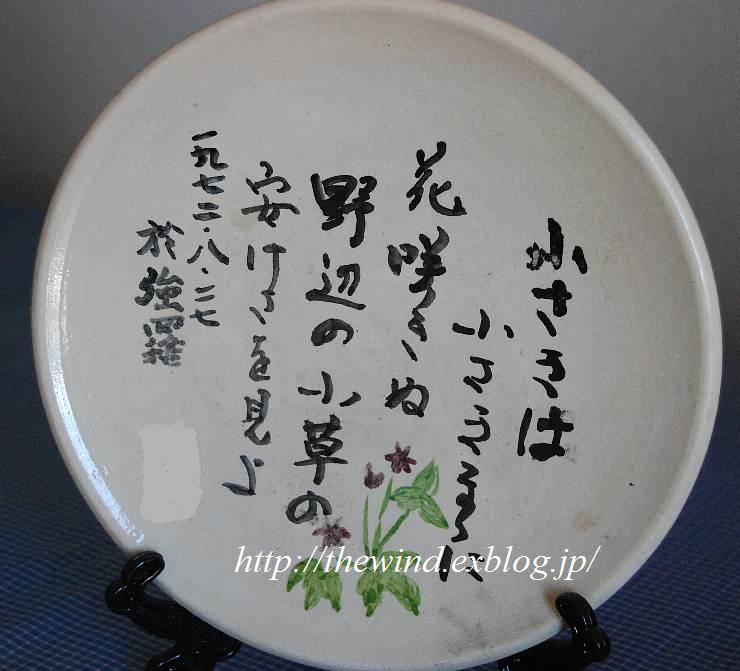 小さきは
小さきまゝに
花咲きぬ
野辺の小草の
安けさを見よ
一九七二・八・二七
於強羅
http://thewind.exblog.jp/